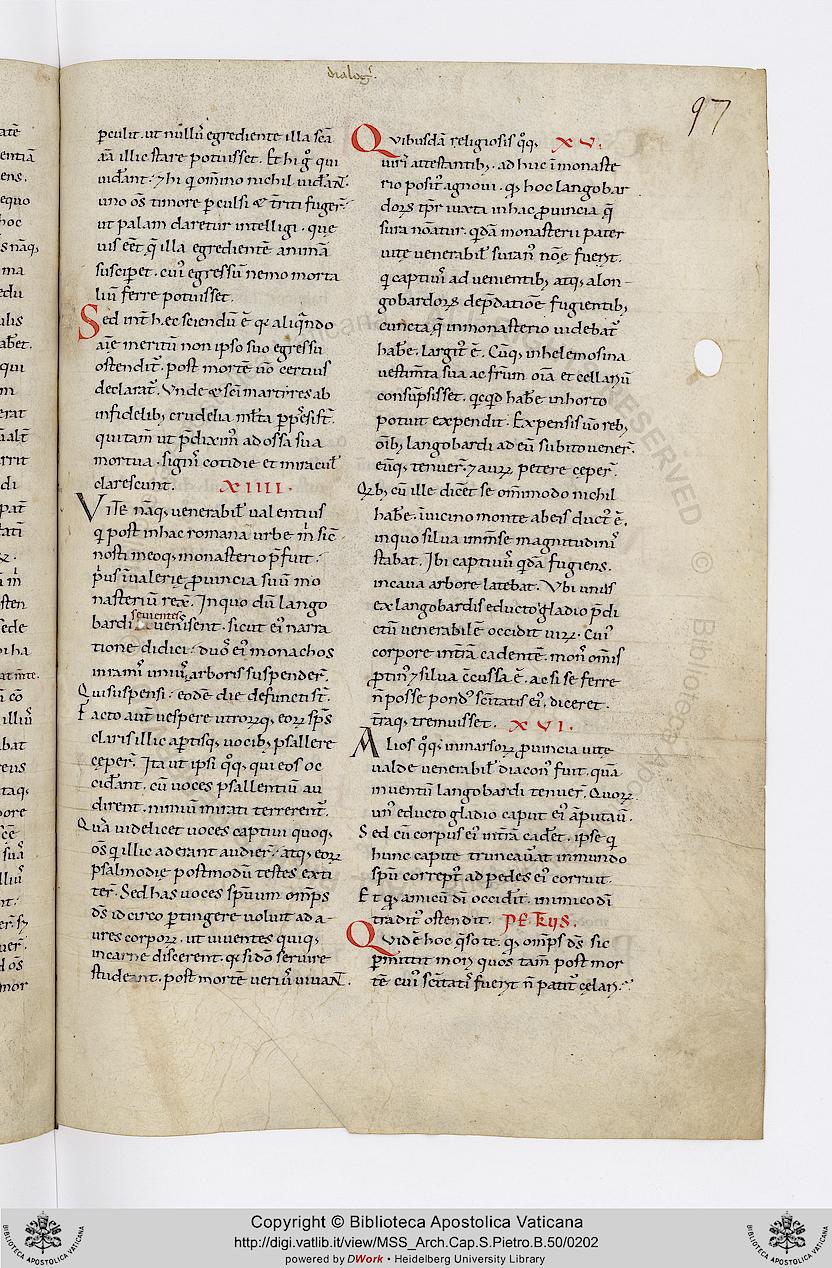 dialog̃.
97
ꝑculit. ut nullũ egrediente illa scã
aĩa illic stare potuisset. Et hi g̃ qui
uid̃ant. ⁊ hi q̃ om̃ino nichil uid̃ant̃.
uno om̃s timore ꝑculsi & t̃riti fuger̃.
ut palam daretur intelligi. que
uis eẽt q̃ illa egredientẽ animã
susciꝑet. cui᷒ egressũ nemo morta
liũ ferre potuisset.
Sed int̃ hec sciendũ ẽ qꝫ aliq̃ndo
aĩe meritũ non ipso suo egressu
ostendit̃. post mortẽ ũo certius
declarat̃. Vnde & scĩ martires ab
infidelibꝫ crudelia ml̃ta ꝑp̃essi st̃.
qui tam̃ ut p̃dixim᷒ ad ossa sua
mortua. signis cotidie et miracul̃
clarescunt. XIIII.
Vite nãqꝫ uenerabil̃ ualentius
q̃ post in hac romana urbe m̃ sic̃
nosti meoqꝫ monasterio p̃fuit.
p̃us ĩ ualerię ꝓuincia suũ mo
nasteriũ rex̃. In quo dũ lango
seuientes
bardi uenissent. sicut ei᷒ narra
tione didici. duos ei᷒ monachos
in ramis uni᷒ arboris suspender̃.
Qui suspensi. eodẽ die defuncti st̃.
Facto aut̃ uespere utrorꝫqꝫ eoꝝ sp̃s
claris illic aꝑtisqꝫ uocibꝫ psallere
ceper̃. Ita ut ipsi q̃qꝫ qui eos oc
cid̃ant. cũ uoces psallentiũ au
dirent. nimiũ mirati terrerent̃.
Quã uidelicet uoces captiui quoqꝫ
om̃s q̃ illic aderant audier̃. atqꝫ eoꝝ
psalmodię postmodũ testes exti
ter̃. Sed has uoces sp̃uum om̃ps
d̃s idcirco ꝑtingere uoluit ad a-
ures corpoꝝ. ut uiuentes quiqꝫ
in carne discerent. qꝫ si d̃o seruire
studeant. post mortẽ ueri᷒ uiuañt.
Quibusdã religiosis q̃qꝫ XV.
uiris attestantibꝫ. ad huc ĩ monaste
rio posit᷒ agnoui. qꝫ hoc langobar
doꝝ tp̃r iuxta in hac ꝓuincia q̃
sura nom̃atur. q̃dã monasterii pater
uitę uenerabil̃ suran᷒ noĩe fuerit.
q̃ captiuis ad uenientibꝫ atqꝫ a lon-
gobardoꝝ dep̃datioñe fugientibꝫ
cuncta q̃ in monasterio uidebat̃
hab̃e. largit᷒ ẽ. Cũqꝫ in helemosina
uestim̃ta sua ac fr̃um oĩa et cellariũ
consũpsisset. q̃cq̃d hab̃e in horto
potuit expendit. Expensis ũo rebꝫ
om̃ibꝫ langobardi ad eũ subito uener̃.
eũqꝫ tenuer̃. ⁊ auꝝ petere ceper̃.
Qꝝbꝫ cũ ille dic̃et se om̃imodo nichil
hab̃e. ĩ uicino monte ab eis duct᷒ ẽ.
in quo silua imm̃se magnitudinis
stabat. Ibi captiuus q̃dã fugiens.
in caua arbore latebat. Vbi unus
ex langobardis educto gladio p̃di
ctũ uenerabilẽ occidit uiꝝ. Cui᷒
corpore int̃rã cadentẽ. mons om̃is
ꝓtin᷒ ⁊ silua c̃cussa ẽ. ac si se ferre
ñ posse pond᷒ sc̃itatis ei᷒. diceret.
t̃raqꝫ tremuisset. XVI.
Alios q̃qꝫ in marsoꝝ ꝓuincia uitę
ualde uenerabil̃ diacon᷒ fuit. quã
inuentũ langobardi tenuer̃. Quoꝝ
un᷒ educto gladio caput ei᷒ ãputauĩ.
Sed cũ corpus ei᷒ int̃rã cad̃et. ipse q̃
hunc capite truncau̇at inmundo
sp̃u corrept᷒ ad pedes ei᷒ corruit.
Et qꝫ amicũ dĩ occidit. inimico dĩ
tradit᷒ ostendit. PET̃RVS.
Quid ẽ hoc q̃so te. qꝫ om̃ps d̃s sic
ꝑmittit mori quos tam̃ post mor
tẽ cui᷒ sc̃itatis fuerit ñ patit̃ cęlari.
RESERVED © Biblioteca Apo
Copyright © Biblioteca Apostolica Vaticana
http://digi.vatlib.it/view/MSS_Arch.Cap.S.Pietro.B.50/0202
powered by DWork • Heidelberg University Library
BIBLIOTECA APOSTOLICA VATICANA
BIBLIOTECA APOSTOLICA VATICANA